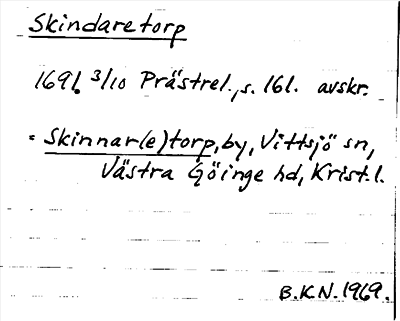 Skindaretorp
1691. 3/10 Prästrel., s. 161. avskr.
= Skinnar(e)torp, by, Vittsjö sn,
Västra Göinge hd, Krist. l.
B.K.N. 1969.